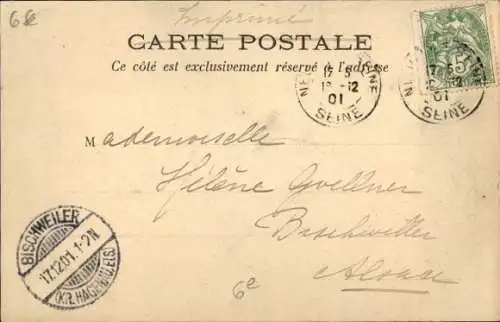 6e
Imprimé
CARTE POSTALE
Ce côté est exclusivement réservé à l'adresse
17 5
12
01
SEINE
5
17 5
12
01
SEINE
Mademoiselle
Hélène Gvellner
Bischwiller
Alsace
BISCHWEILER
17.12.01.1-2N
(KR. HAGENAU ELS)
6e